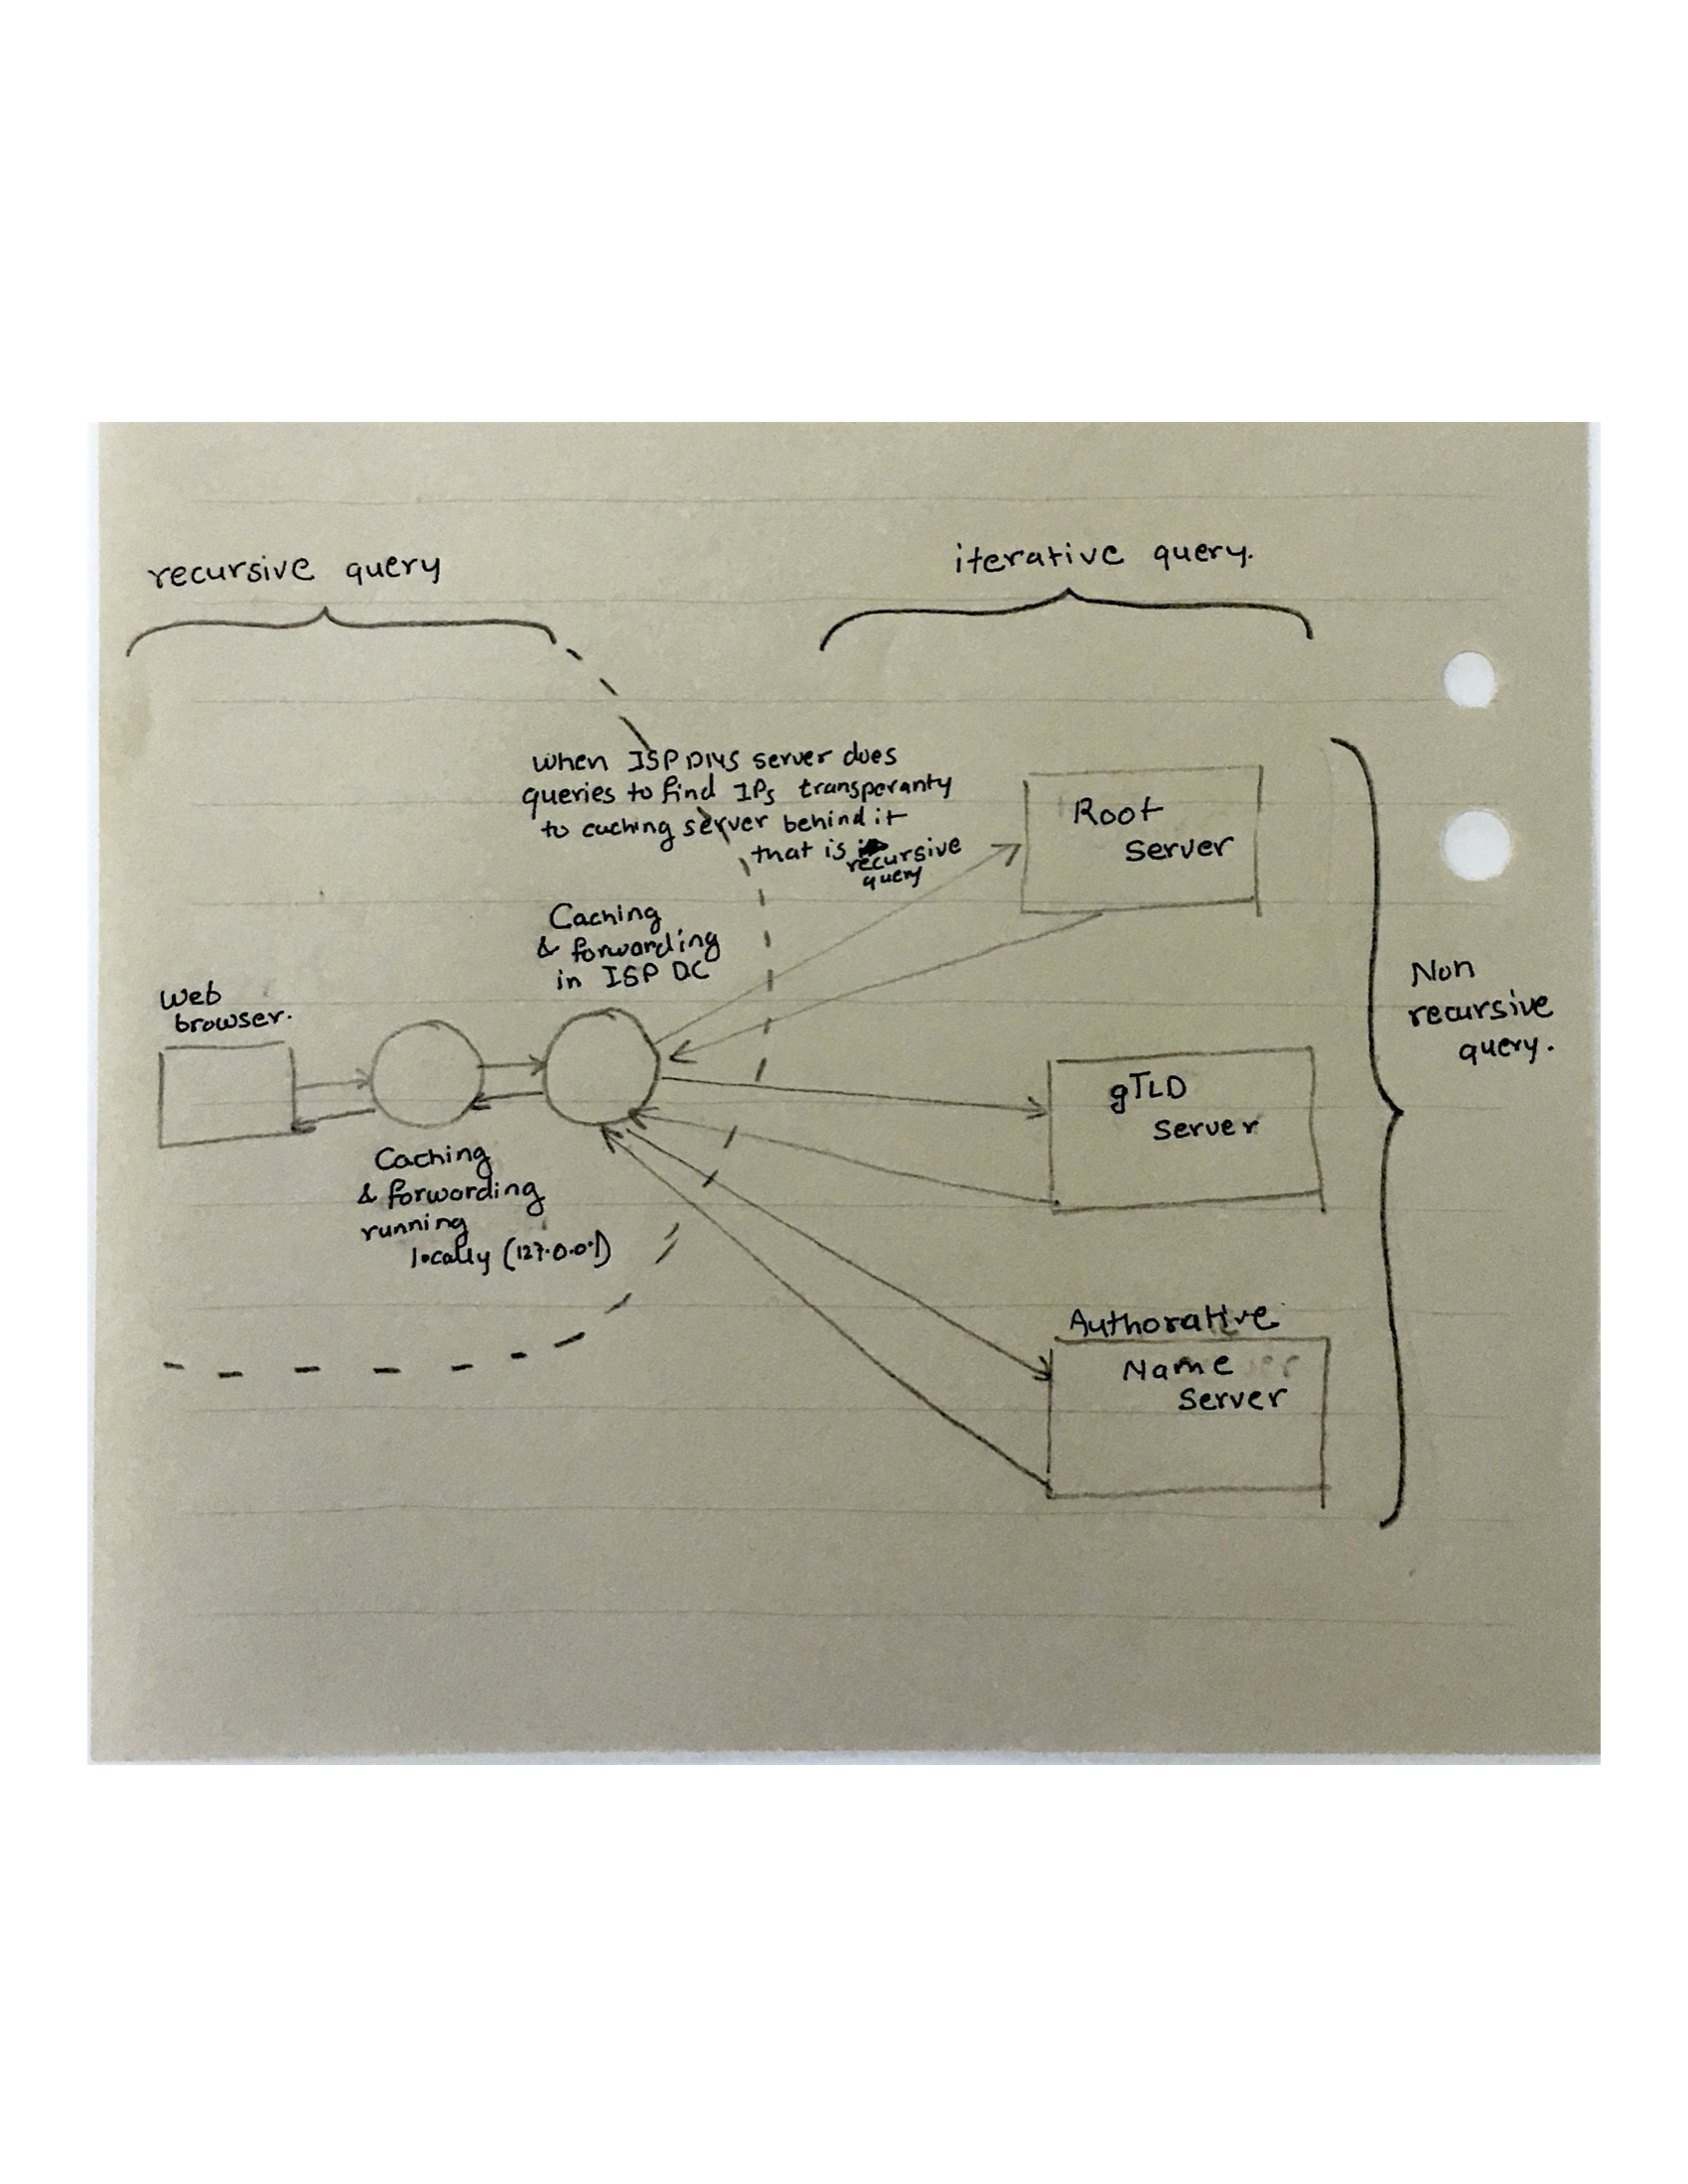 recursive query
iterative query.
when ISP DNS server dues
queries to find IPs transperanty
to caching server behind it
that is recursive
query
Root
server
Caching
& forwarding
in ISP DC
Web
browser.
Non
recursive
query.
gTLD
server
Caching
& forwarding
running
locally (127.0.0.1)
Authorative
Name
Server